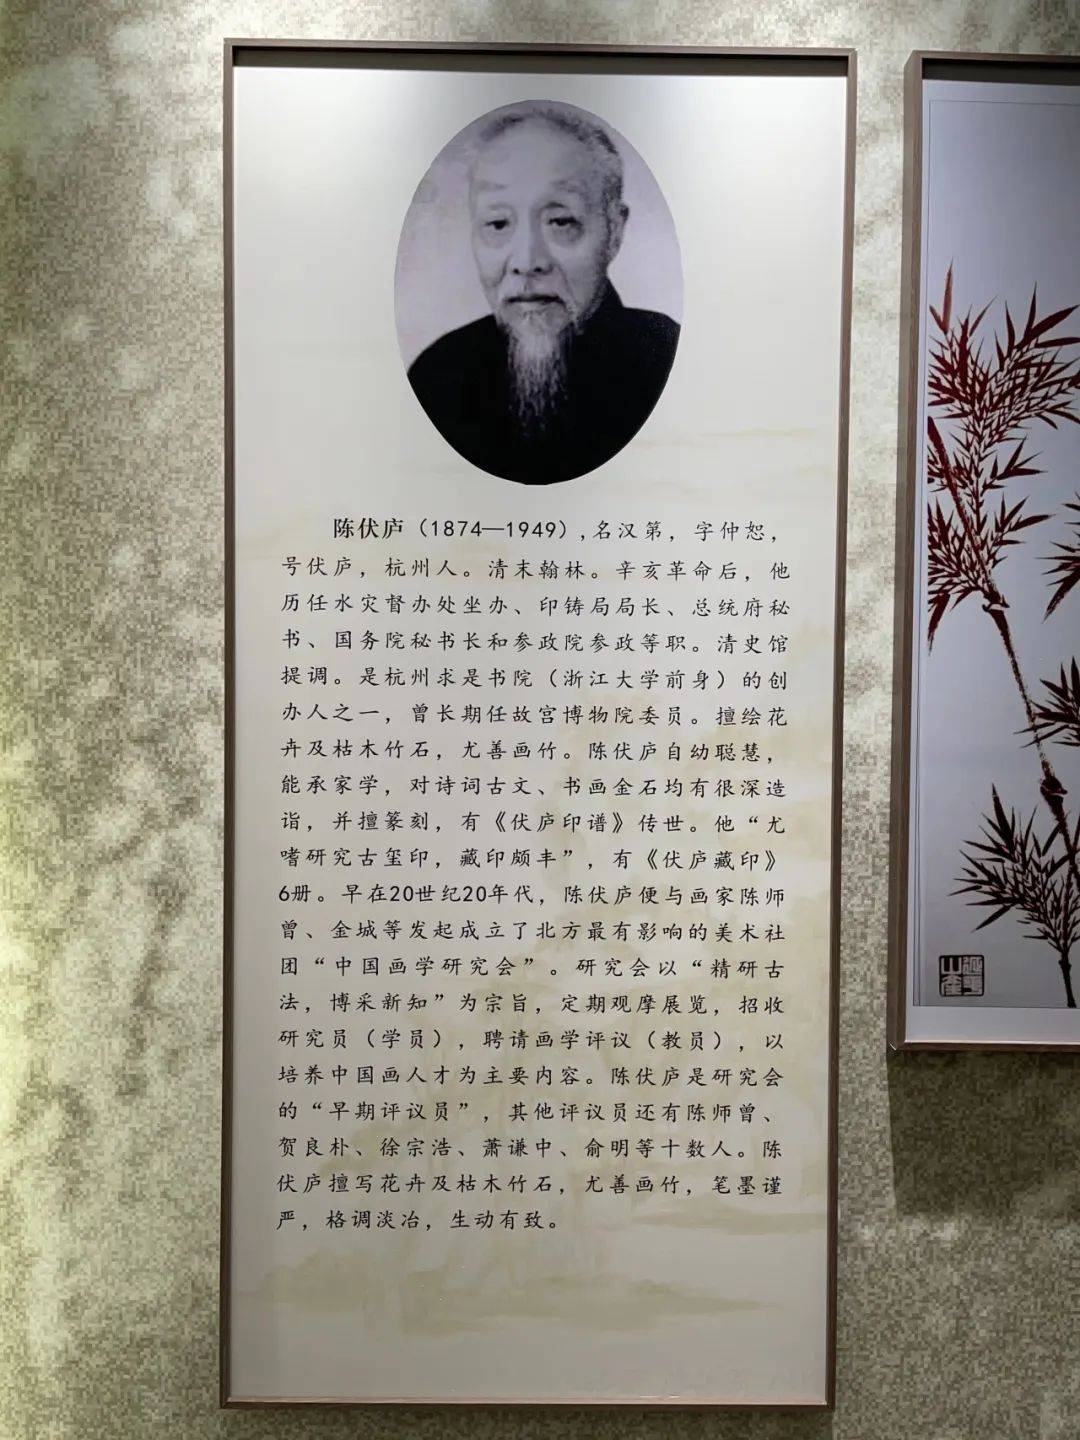 陈伏庐（1874—1949）,名汉第，字仲恕，
号伏庐，杭州人。清末翰林。辛亥革命后，他
历任水灾督办处坐办、印铸局局长、总统府秘
书、国务院秘书长和参政院参政等职。清史馆
提调。是杭州求是书院（浙江大学前身）的创
办人之一，曾长期任故宫博物院委员。擅绘花
卉及枯木竹石，尤善画竹。陈伏庐自幼聪慧，
能承家学，对诗词古文、书画金石均有很深造
诣，并擅篆刻，有《伏庐印谱》传世。他“尤
嗜研究古玺印，藏印颇丰”，有《伏庐藏印》
6册。早在20世纪20年代，陈伏庐便与画家陈师
曾、金城等发起成立了北方最有影响的美术社
团“中国画学研究会”。研究会以“精研古
法，博采新知”为宗旨，定期观摩展览，招收
研究员（学员），聘请画学评议（教员），以
培养中国画人才为主要内容。陈伏庐是研究会
的“早期评议员”，其他评议员还有陈师曾、
贺良朴、徐宗浩、萧谦中、俞明等十数人。陈
伏庐擅写花卉及枯木竹石，尤善画竹，笔墨谨
严，格调淡冶，生动有致。